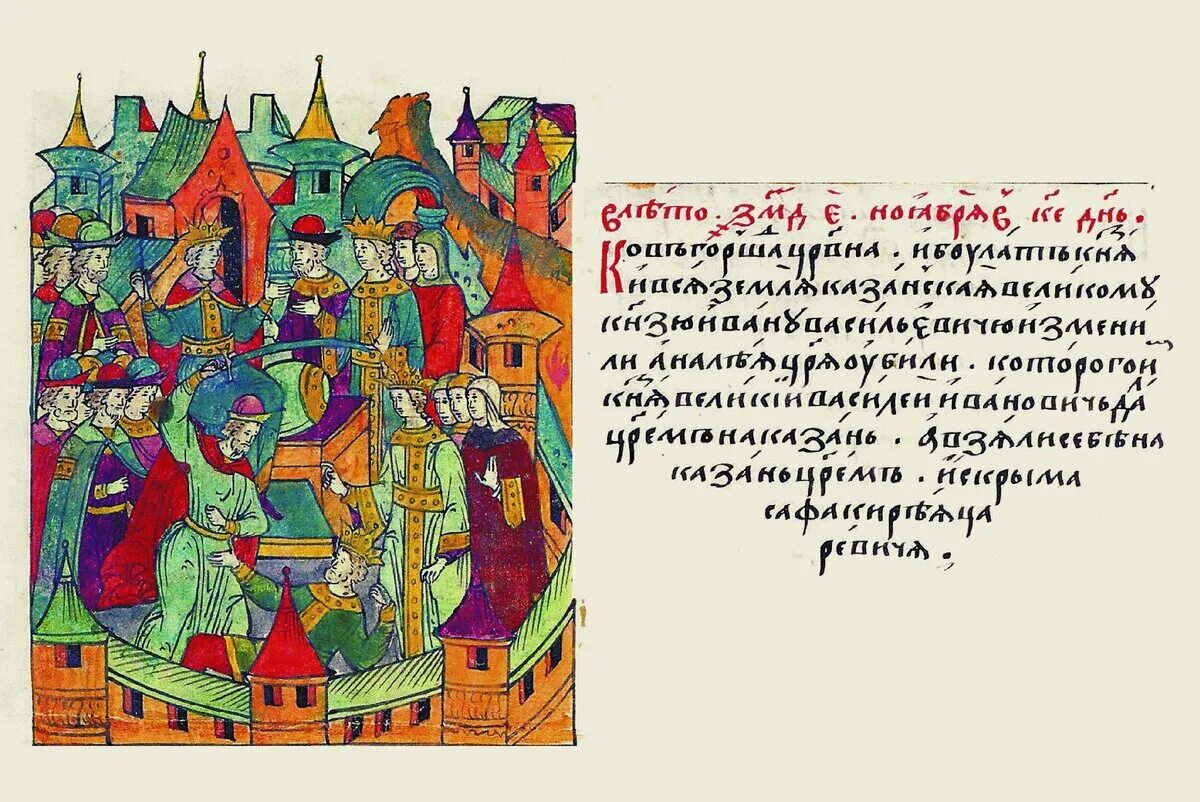 в лѣто . зм҃д е҃ . ноѧбрѧ в҃ ке днь .
Ковъгоршацр҃вна . ибоулатъкнѧꙁ
ивсѧземлѧказанскаѧвеликому
кнꙁюивануваcильевичюизмени
ли анальѧцр҃ѧоубили . которогои
кнѧвеликиивасилеиивановичьда
цр҃емъ наказань . авзялисебѣна
казаньцр҃емъ . искрыма
сафакирѣяца
ревичѧ .